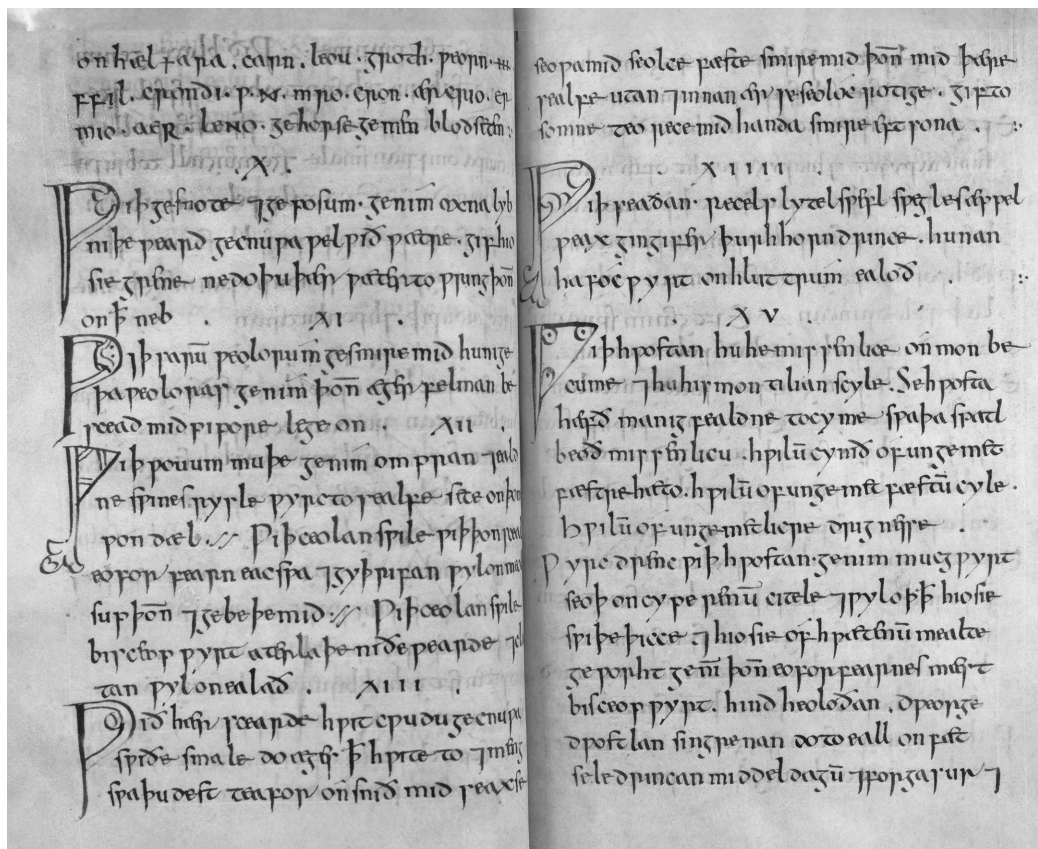 onhæl ꝼ ara . carn . leou . groth . ƿeorn .
ffil . crondi . ƿ . x . mro . cron . ær crio . er
mio . aeR . leNo . ge horse ge men blodseten :
. X .
Ƿiþ gesnote ⁊ geposum . genim̄ oxna lyb
niþeƿeard gecnuƿa ƿel ƿið ƿætre . gif hio
sie grene ne do þu þær ƿæter to ƿring þoñ
on ꝥ neb . XI .
Ƿiþ sarū ƿeolorum gesmire mid hunige
þa ƿeoloras genim þoñ æger felman be
scead mid pipore lege on . XII .
Ƿiþ ƿouum muþe genim̄ ompran ⁊ eald
ne sƿines rysle ƿyrc to sealfe sete on þon
ƿon dæl . Ƿiþ ceolan sƿile ƿiþ þon
eofor fearn eac sƿa ⁊ gyþrifan ƿyl on
sup þoñ ⁊ gebeþe mid . Ƿiþ ceolan sƿile
bisceop ƿyrt aterlaþe niðeƿearde ⁊ cl
tan ƿyl on ealað . XIII .
Ƿið hær scearde hƿit cƿudu gecnuƿa
sƿiðe smale do æges ꝥ hƿite to ⁊ meng
sƿa þu dest teafor oñsnið mid seaxse
seoƿa mid seolce fæste smire mid þoñ mid þære
sealfe utan ⁊ innan ær se seoloc rotige . gif to
somne teo rece mid handa smire eft sona . :
XIIII .
Ƿiþ readan . recels lytel sƿefl sƿegles æppel
ƿeax gingifer þurh horn drince . hunan
hafoc ƿyrt on hluttrum ealoð . :
XV .
Ƿiþ hƿostan hu he missenlice oñ mon be
cume ⁊ hu his mon tilian scyle . Se hƿosta
hæfð manigfealdne tocyme sƿa þa spatl
beoð missenlicu . hƿilū cymð of ungemet
fæstre hæto . hƿilū of ungemet fæstū cyle .
hƿilū of ungemetlicre drignesse .
Ƿyrc drenc ƿiþ hƿostan . genim mucgƿyrt
seoþ on cyperenū citele ⁊ ƿyl oþ ꝥ hio sie
sƿiþe þicce . ⁊ hio sie of hƿætenū mealte
geƿorht geniḿ þoñ eoforfearnes mæst
bisceop ƿyrt . hind heoloðan . dƿeorge
dƿostlan singrenan do to eall on fæt
sele drincan middeldagū ⁊ forga sur ⁊